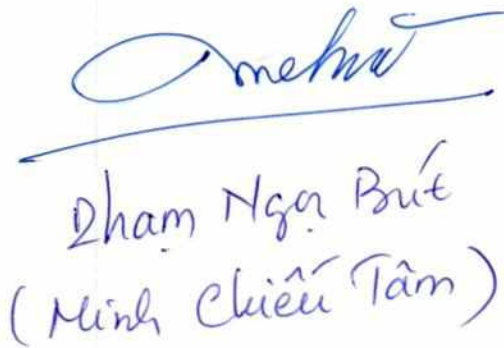 Phạm Ngọc Bút
(Minh Chiếu Tâm)